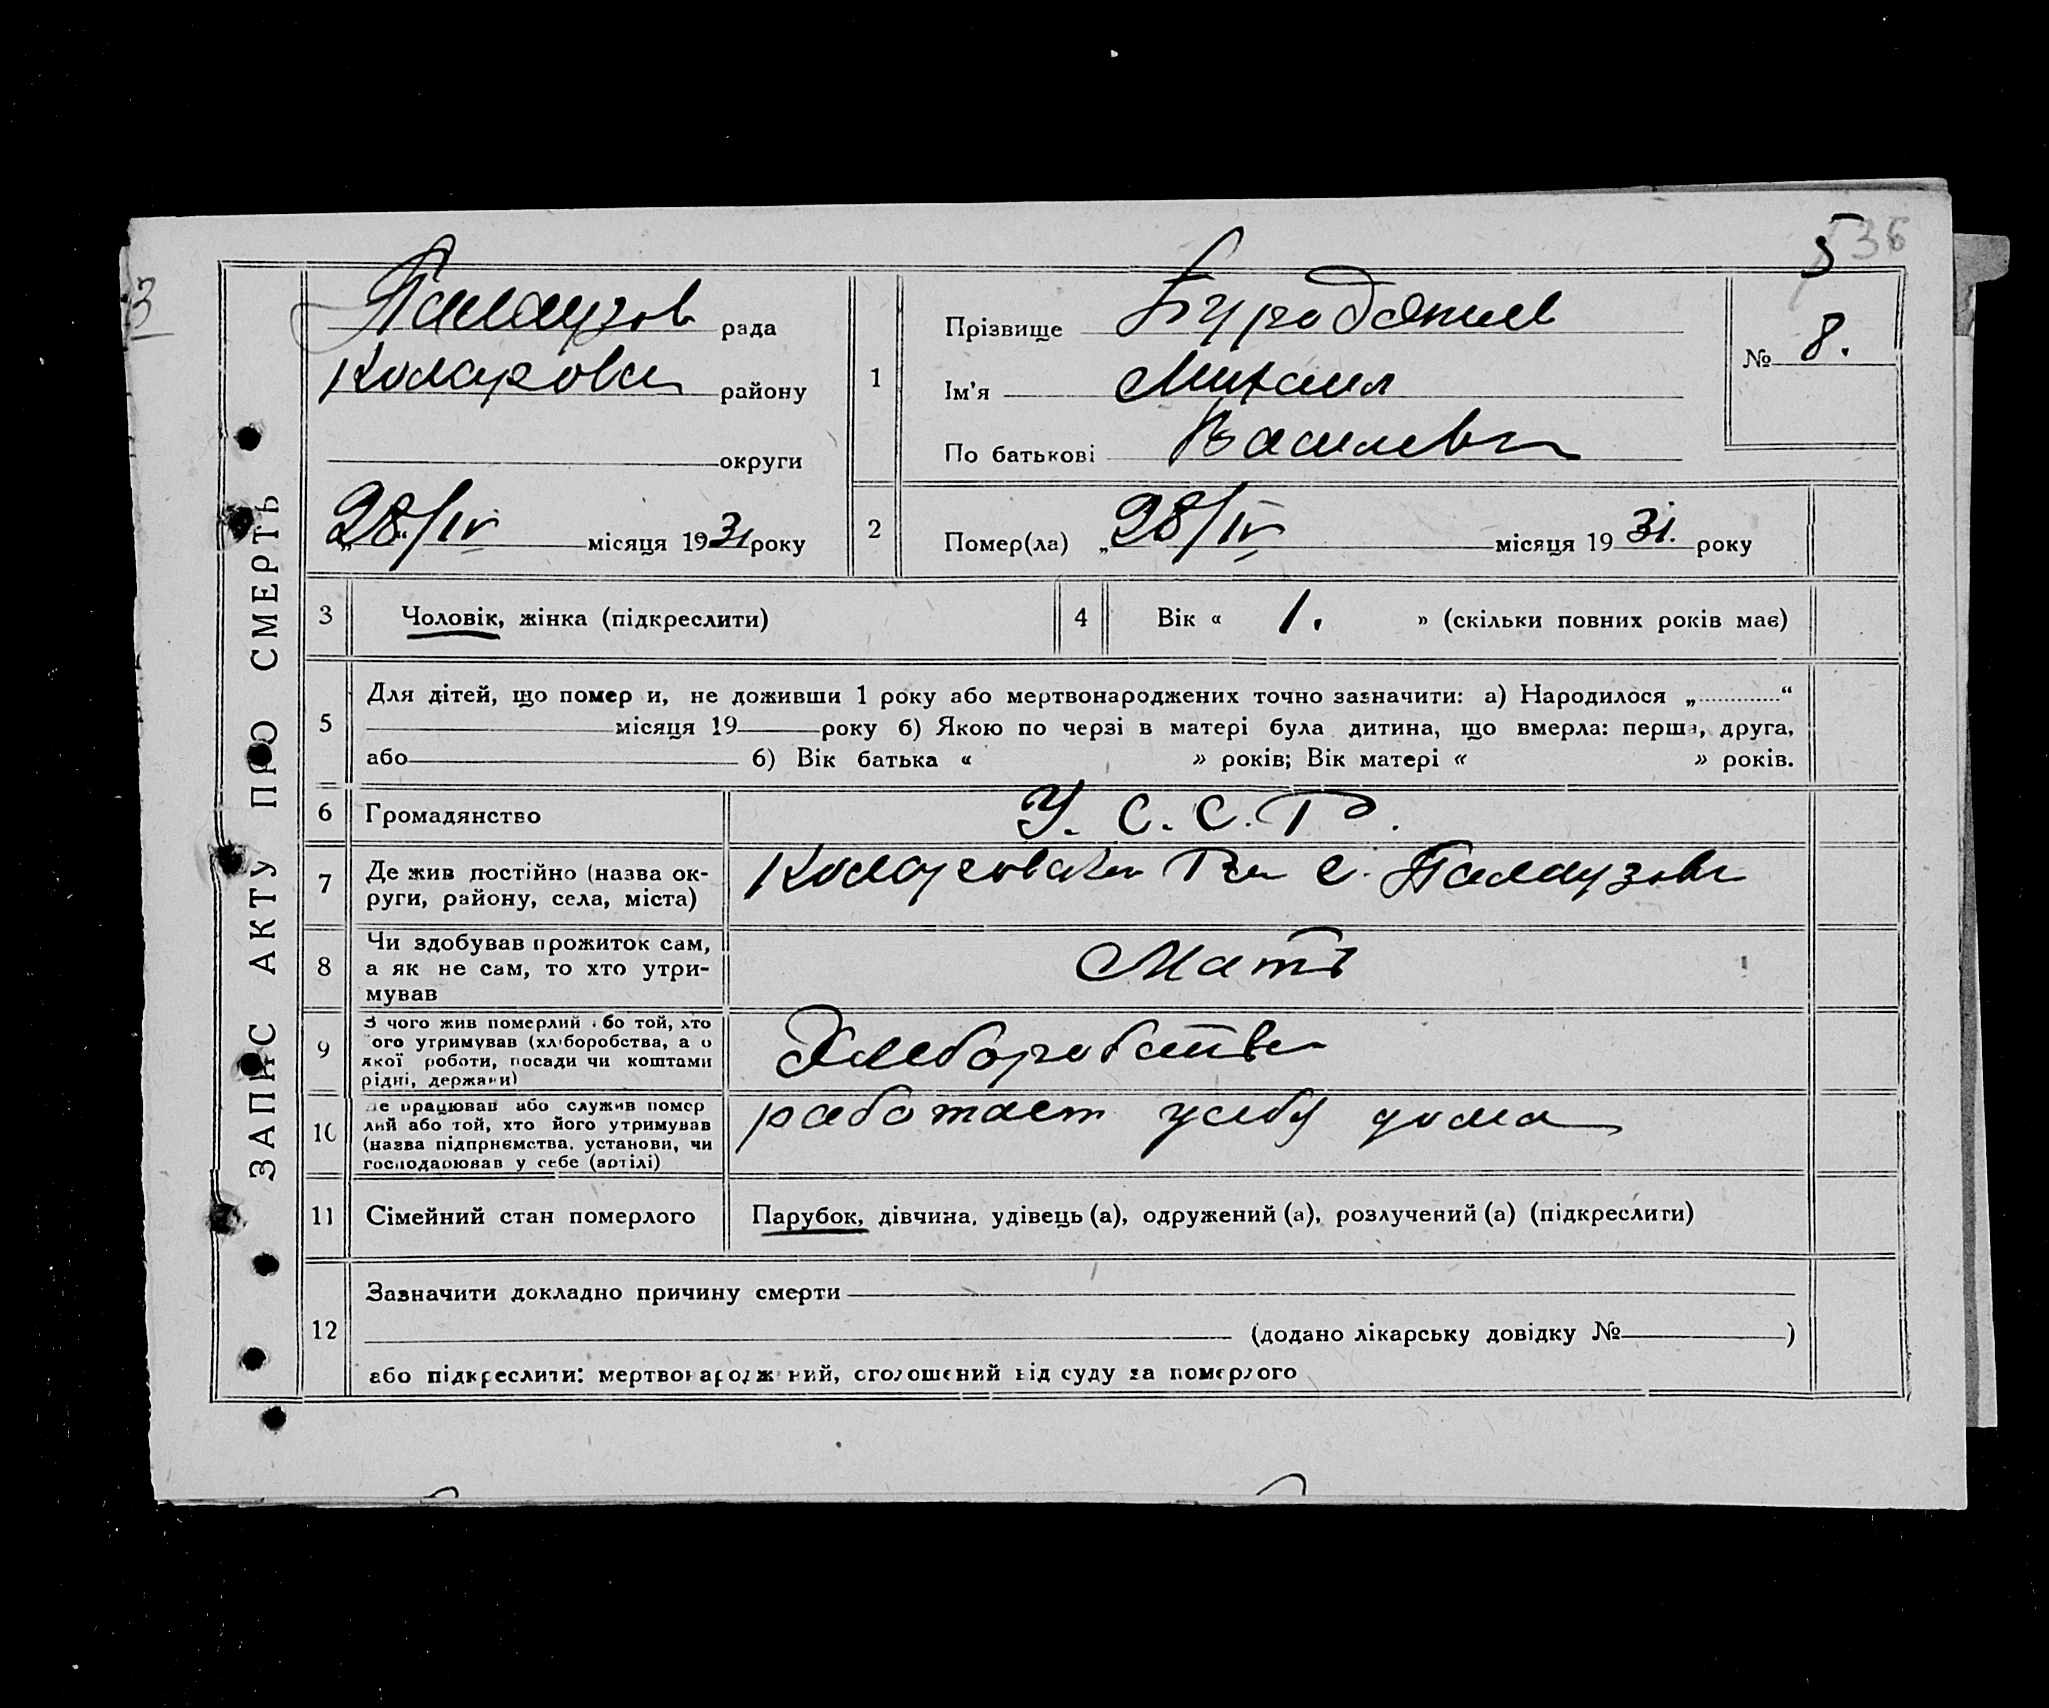 5 36
3
ЗАПИС АКТУ ПРО СМЕРТЬ
Палаузов рада
Коларовск району
округи
„28/IV“ місяця 1931 року
1
Прізвище
Ім'я Михаил
По батькові Василев
№ 8.
2
Помер(ла) „28/IV місяця 1931. року
3 Чоловік, жінка (підкреслити)
4 Вік « 1. » (скільки повних років має)
5
Для дітей, що помер и, не доживши 1 року або мертвонароджених точно зазначити: а) Народилося „ “
місяця 19 року б) Якою по черзі в матері була дитина, що вмерла: перша, друга,
або б) Вік батька « » років; Вік матері « » років.
6 Громадянство У. С. С. Р.
7
Де жив постійно (назва ок-
руги, району, села, міста)
Коларовский Рн с. Палаузовк
8
Чи здобував прожиток сам,
а як не сам, то хто утри-
мував
Мать
9
З чого жив померлий або той, хто
його утримував (хліборобства, а о
якої роботи, посади чи коштами
рідні, держави)
Хлеборобство
10
Де працював або служив помер
лий або той, хто його утримував
(назва підприємства, установи, чи
господарював у себе (артілі)
работает усебя дома
11 Сімейний стан померлого
Парубок, дівчина, удівець (а), одружений (а), розлучений (а) (підкреслити)
12
Зазначити докладно причину смерти
(додано лікарську довідку № )
або підкреслити: мертвонароджений, оголошений від суду за померлого